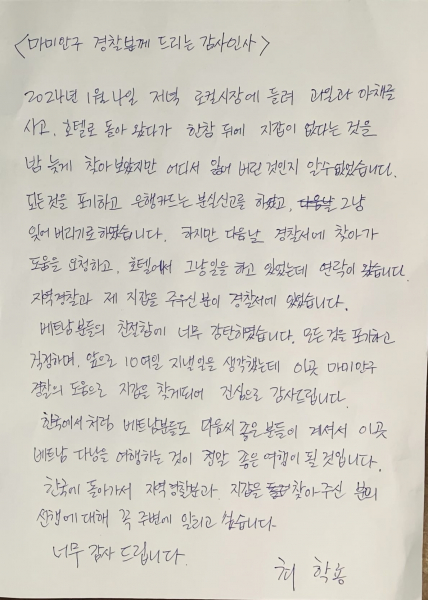 <마미안구 경찰분께 드리는 감사인사>
2024년 1월 4일 저녁 로컬시장에 들려 과일과 야채를
사고, 호텔로 돌아 왔다가 한참 뒤에 지갑이 없다는 것을
밤 늦게 찾아 보았지만 어디서 잃어 버린 것인지 알수없었습니다.
모든것을 포기하고 은행카드는 분실신고를 하였고, 다음날 그냥
잊어 버리기로하였습니다. 하지만 다음날 경찰서에 찾아가
도움을 요청하고, 호텔에서 그냥일을 하고 있었는데 연락이 왔습니다.
지역경찰과 제 지갑을 주우신분이 경찰서에 있었습니다.
베트남분들의 친절함에 너무 감탄하였습니다. 모든것을 포기하고
걱정하며, 앞으로 10여일 지낼일을 생각했는데 이곳 마미안구
경찰의 도움으로 지갑을 찾게되어 진심으로 감사드립니다.
한국에서처럼 베트남분들도 마음씨 좋은분들이 계셔서 이곳
베트남 다낭을 여행하는 것이 정말 좋은 여행이 될 것입니다.
한국에 돌아가서 지역경찰분과 지갑을 찾아주신 분의
선행에 대해 꼭 주변에 알리고 싶습니다.
너무 감사 드립니다.
최 학용